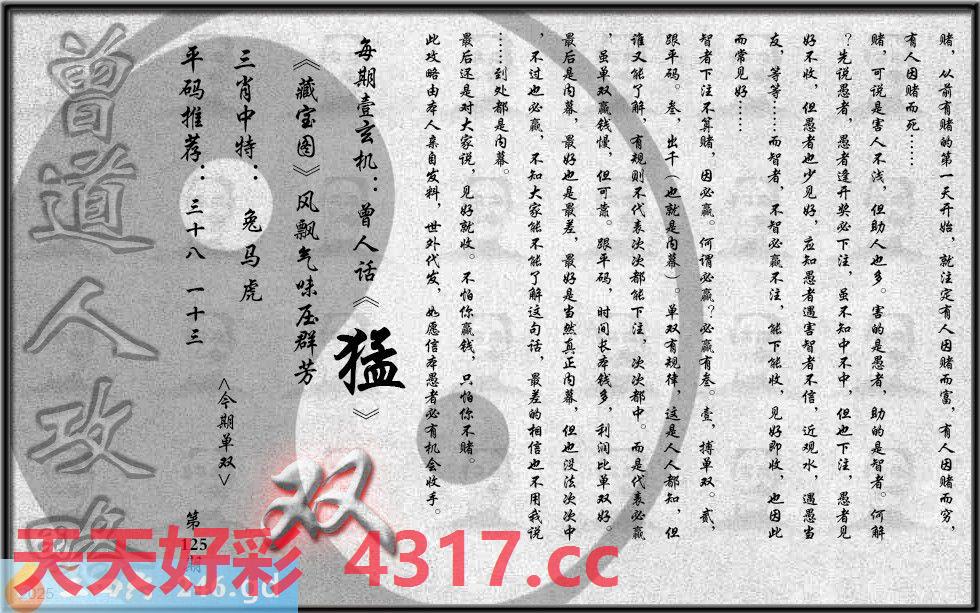 赌，从前有赌的第一天开始，就注定有人因赌而富，有人因赌而穷，
有人因赌而死……
赌，可说是害人不浅，但助人也多。害的是愚者，助的是智者。何解
？先说愚者，愚者逢开奖必下注，虽不知中不中，但也下注，愚者见
好不收，但愚者也少见好，应知愚者遇害智者不信，近观水，遇愚当
友，等等……而智者，不智必赢不注，能下能收，见好即收，也因此
而常见好……
智者下注不算赌，因必赢。何谓必赢？必赢有叁。壹，搏单双。贰，
跟平码。叁，出千（也就是内幕）。单双有规律，这是人人都知，但
谁又能了解，有规则不代表次次都能下注，次次都中。而是代表必赢
，虽单双赢钱慢，但可靠。跟平码，时间长本钱多，利润比单双好。
最后是内幕，最好也是最差，最好是当然真正内幕，但也没法次次中
，不过也必赢，不知大家能不能了解这句话，最差的相信也不用我说
……到处都是内幕。
最后还是对大家说，见好就收。不怕你赢钱，只怕你不赌。
此攻略由本人亲自发料，世外代发，如愿信本愚者必有机会收手。
每期壹玄机：曾人话《猛》
《藏宝图》风飘气味压群芳
三肖中特：兔马虎
平码推荐：三十八 一十三
<今期单双>
双
第
125
期
曾道人攻略
天天好彩 4317.cc
2025